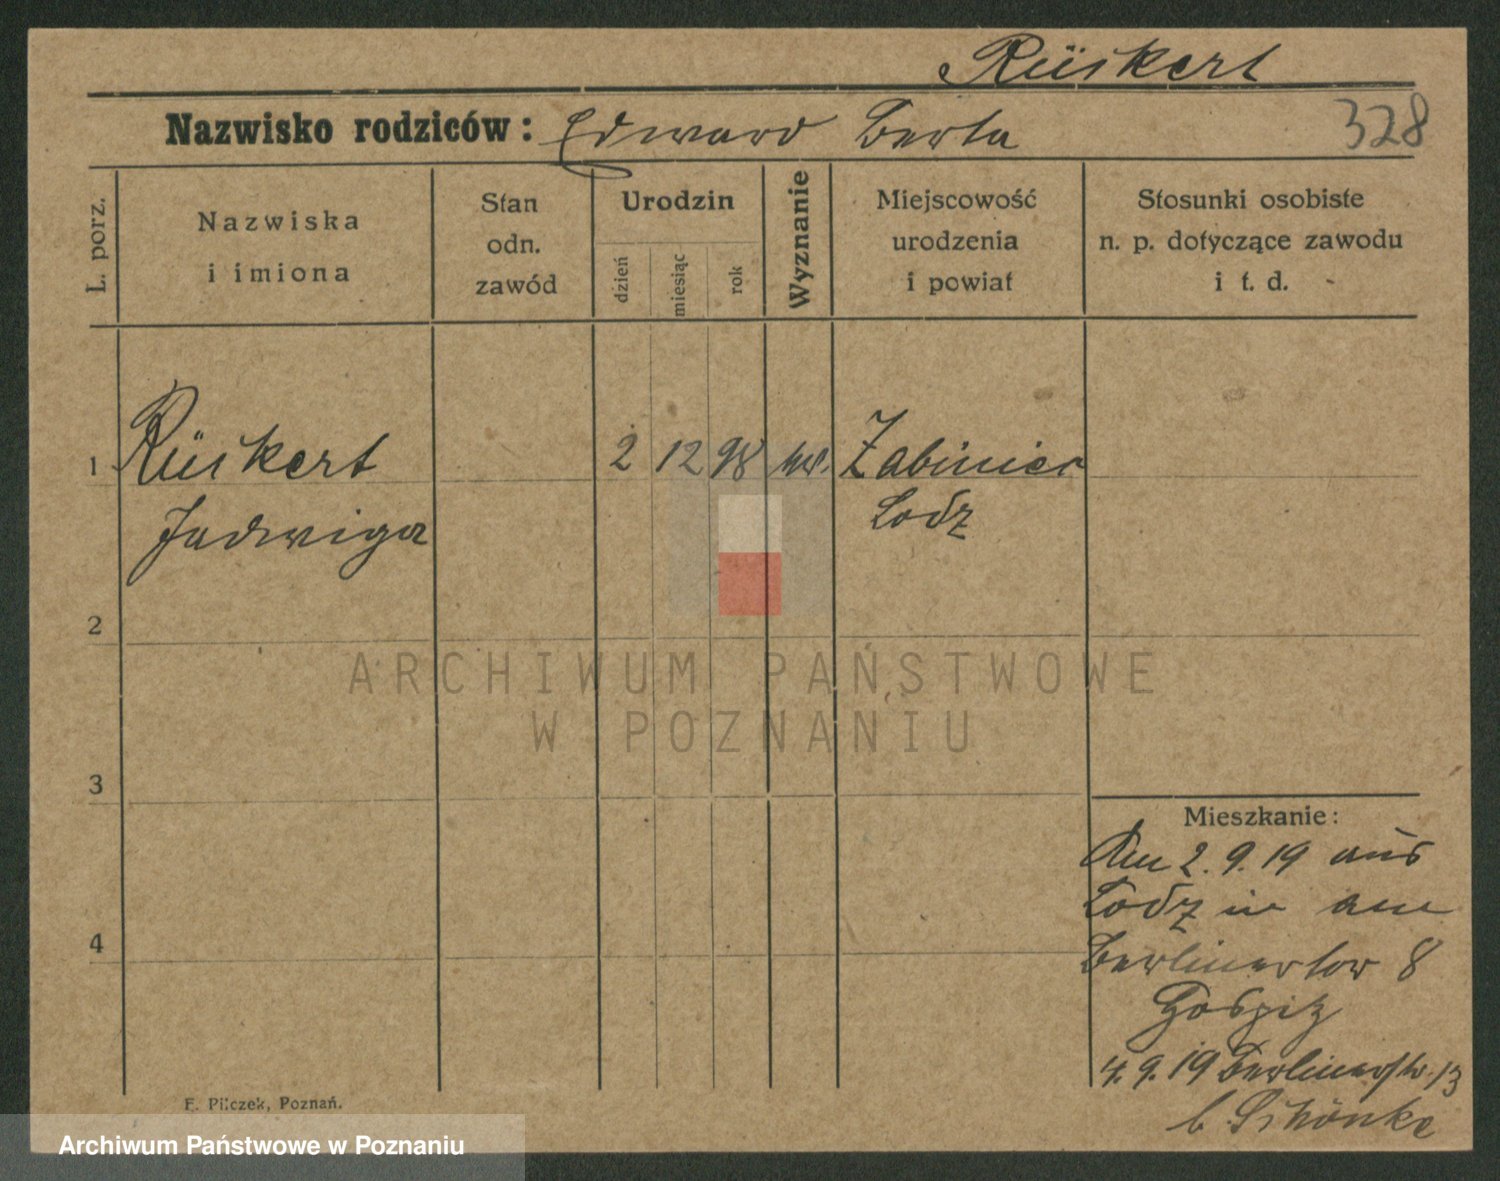 Rückert
Nazwisko rodziców: Edward Berta
328
L. porz.
Nazwiska
i imiona
Stan
odn.
zawód
Urodzin
dzień
miesiąc
rok
Wyznanie
Miejscowość
urodzenia
i powiat
Stosunki osobiste
n. p. dotyczące zawodu
i t. d.
1 Rückert 2 12 98 Zabiniec
Jadwiga Lodz
2
3
4
ARCHIWUM PAŃSTWOWE
W POZNANIU
Mieszkanie:
2.9.19 aus
Lodz in
Berlinertor 8
Hospiz
4.9.19 Berlinerstr. 13
b. Schönke
F. Pilczek, Poznań.
Archiwum Państwowe w Poznaniu